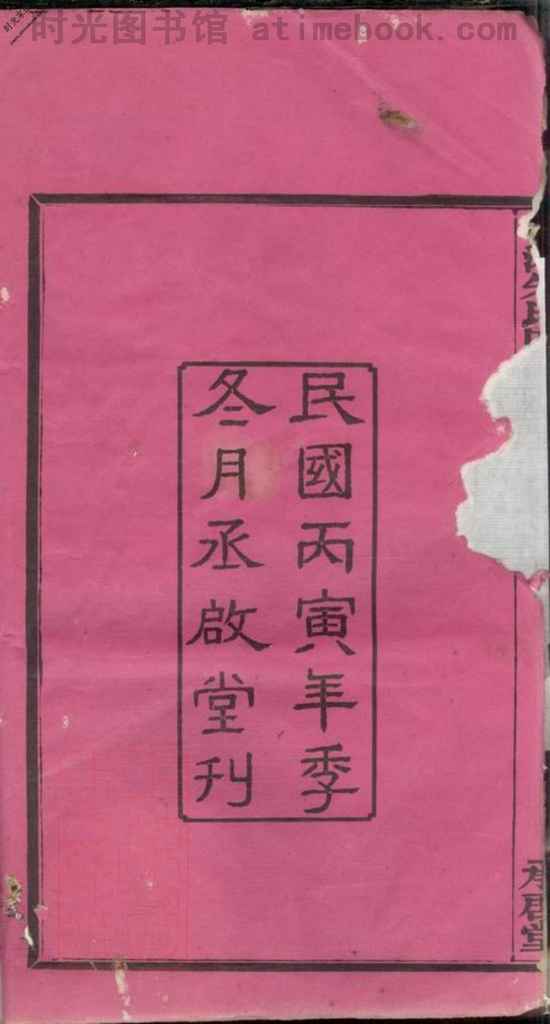 时光图书馆 atimebook.com
民國丙寅年季
冬月丞啟堂刋